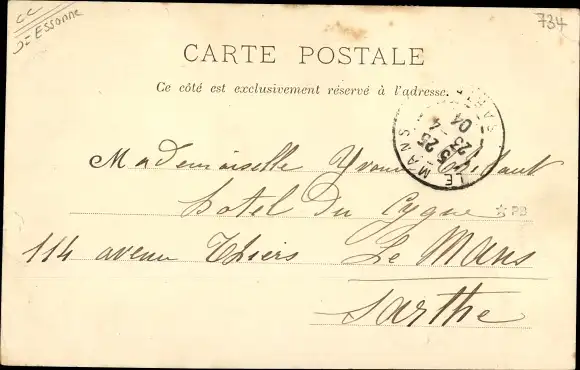 cc
Essonne
734
CARTE POSTALE
Ce côté est exclusivement réservé à l'adresse.
LE MANS
5 - 25
23 - 4
04
Mademoiselle
hotel Du Cygne
PB
114 avenue Thiers Le Mans
Sarthe